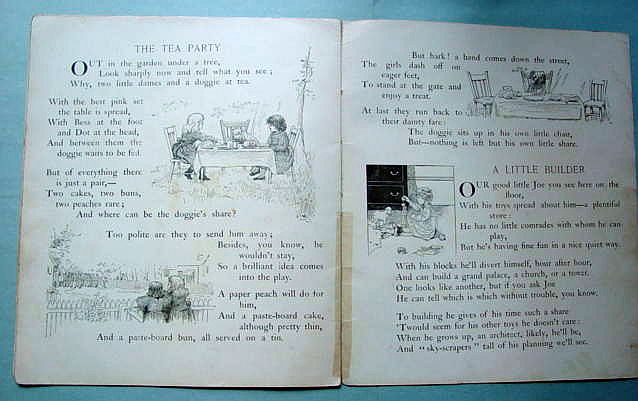 THE TEA PARTY
OUT in the garden under a tree,
Look sharply now and tell what you see;
Why, two little dames and a doggie at tea.
With the best pink set
the table is spread,
With Bess at the foot
and Dot at the head,
And between them the
doggie waits to be fed.
But of everything there
is just a pair,—
Two cakes, two buns,
two peaches rare;
And where can be the doggie's share?
Too polite are they to send him away;
Besides, you know, he
wouldn't stay,
So a brilliant idea comes
into the play.
A paper peach will do for
him,
And a paste-board cake,
although pretty thin,
And a paste-board bun, all served on a tin.
But hark! a band comes down the street,
The girls dash off on
eager feet,
To stand at the gate and
enjoy a treat.
At last they run back to
their dainty fare:
The doggie sits up in his own little chair,
But—nothing is left but his own little share.
A LITTLE BUILDER
OUR good little Joe you see here on the
floor,
With his toys spread about him—a plentiful
store:
He has no little comrades with whom he can
play,
But he's having fine fun in a nice quiet way.
With his blocks he'll divert himself, hour after hour,
And can build a grand palace, a church, or a tower.
One looks like another, but if you ask Joe
He can tell which is which without trouble, you know.
To building he gives of his time such a share
'Twould seem for his other toys he doesn't care:
When he grows up, an architect, likely, he'll be,
And "sky-scrapers" tall of his planning we'll see.